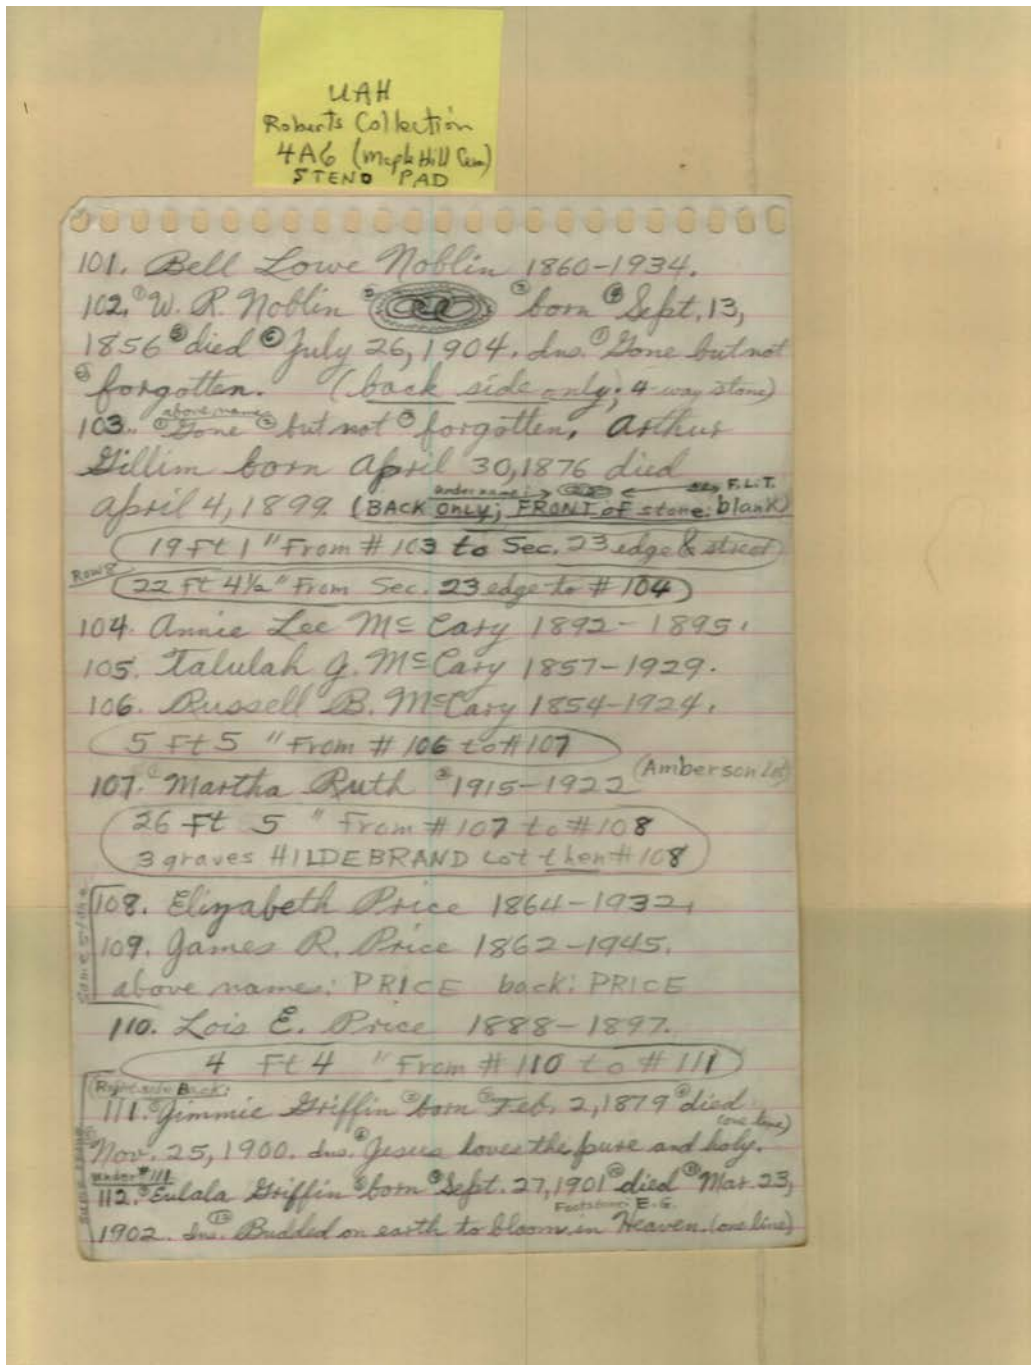 UAH
Roberts Collection
4A6 (Maple Hill Cem)
STENO PAD
101. Bell Lowe Noblin 1860-1934.
102. ① W. R. Noblin ② ③ born ④ Sept. 13,
1856 ⑤ died ⑥ July 26, 1904. Ins. ① Gone but not
② forgotten. (back side only; 4-way stone)
above name
103. ① Gone ② but not ③ forgotten. Arthur
Gillim born April 30, 1876 died
under name: → ← F.L.T.
April 4, 1899. (BACK ONLY; FRONT of stone: blank)
19 Ft 1 " From # 103 to Sec. 23 edge & street
Row 8
22 Ft 4½ " From Sec. 23 edge to # 104
104. Annie Lee McCary 1892-1895.
105. Talulah G. McCary 1857-1929.
106. Russell B. McCary 1854-1924.
5 Ft 5 " From # 106 to # 107
107. ① Martha Ruth ② 1915-1922 (Amberson Lot)
26 Ft 5 " From # 107 to # 108
3 graves HILDEBRAND Lot then # 108
same stone
108. Elizabeth Price 1864-1932.
109. James R. Price 1862-1945.
above names: PRICE back: PRICE
110. Lois E. Price 1888-1897.
4 Ft 4 " From # 110 to # 111
Back:
111. Jimmie Griffin born Feb. 2, 1879 died
(one line)
Nov. 25, 1900. Ins. Jesus loves the pure and holy.
under # 111
112. Eulala Griffin born Sept. 27, 1901 died Mar. 23,
Footstone: E.G.
1902. Ins. Budded on earth to bloom in Heaven. (one line)